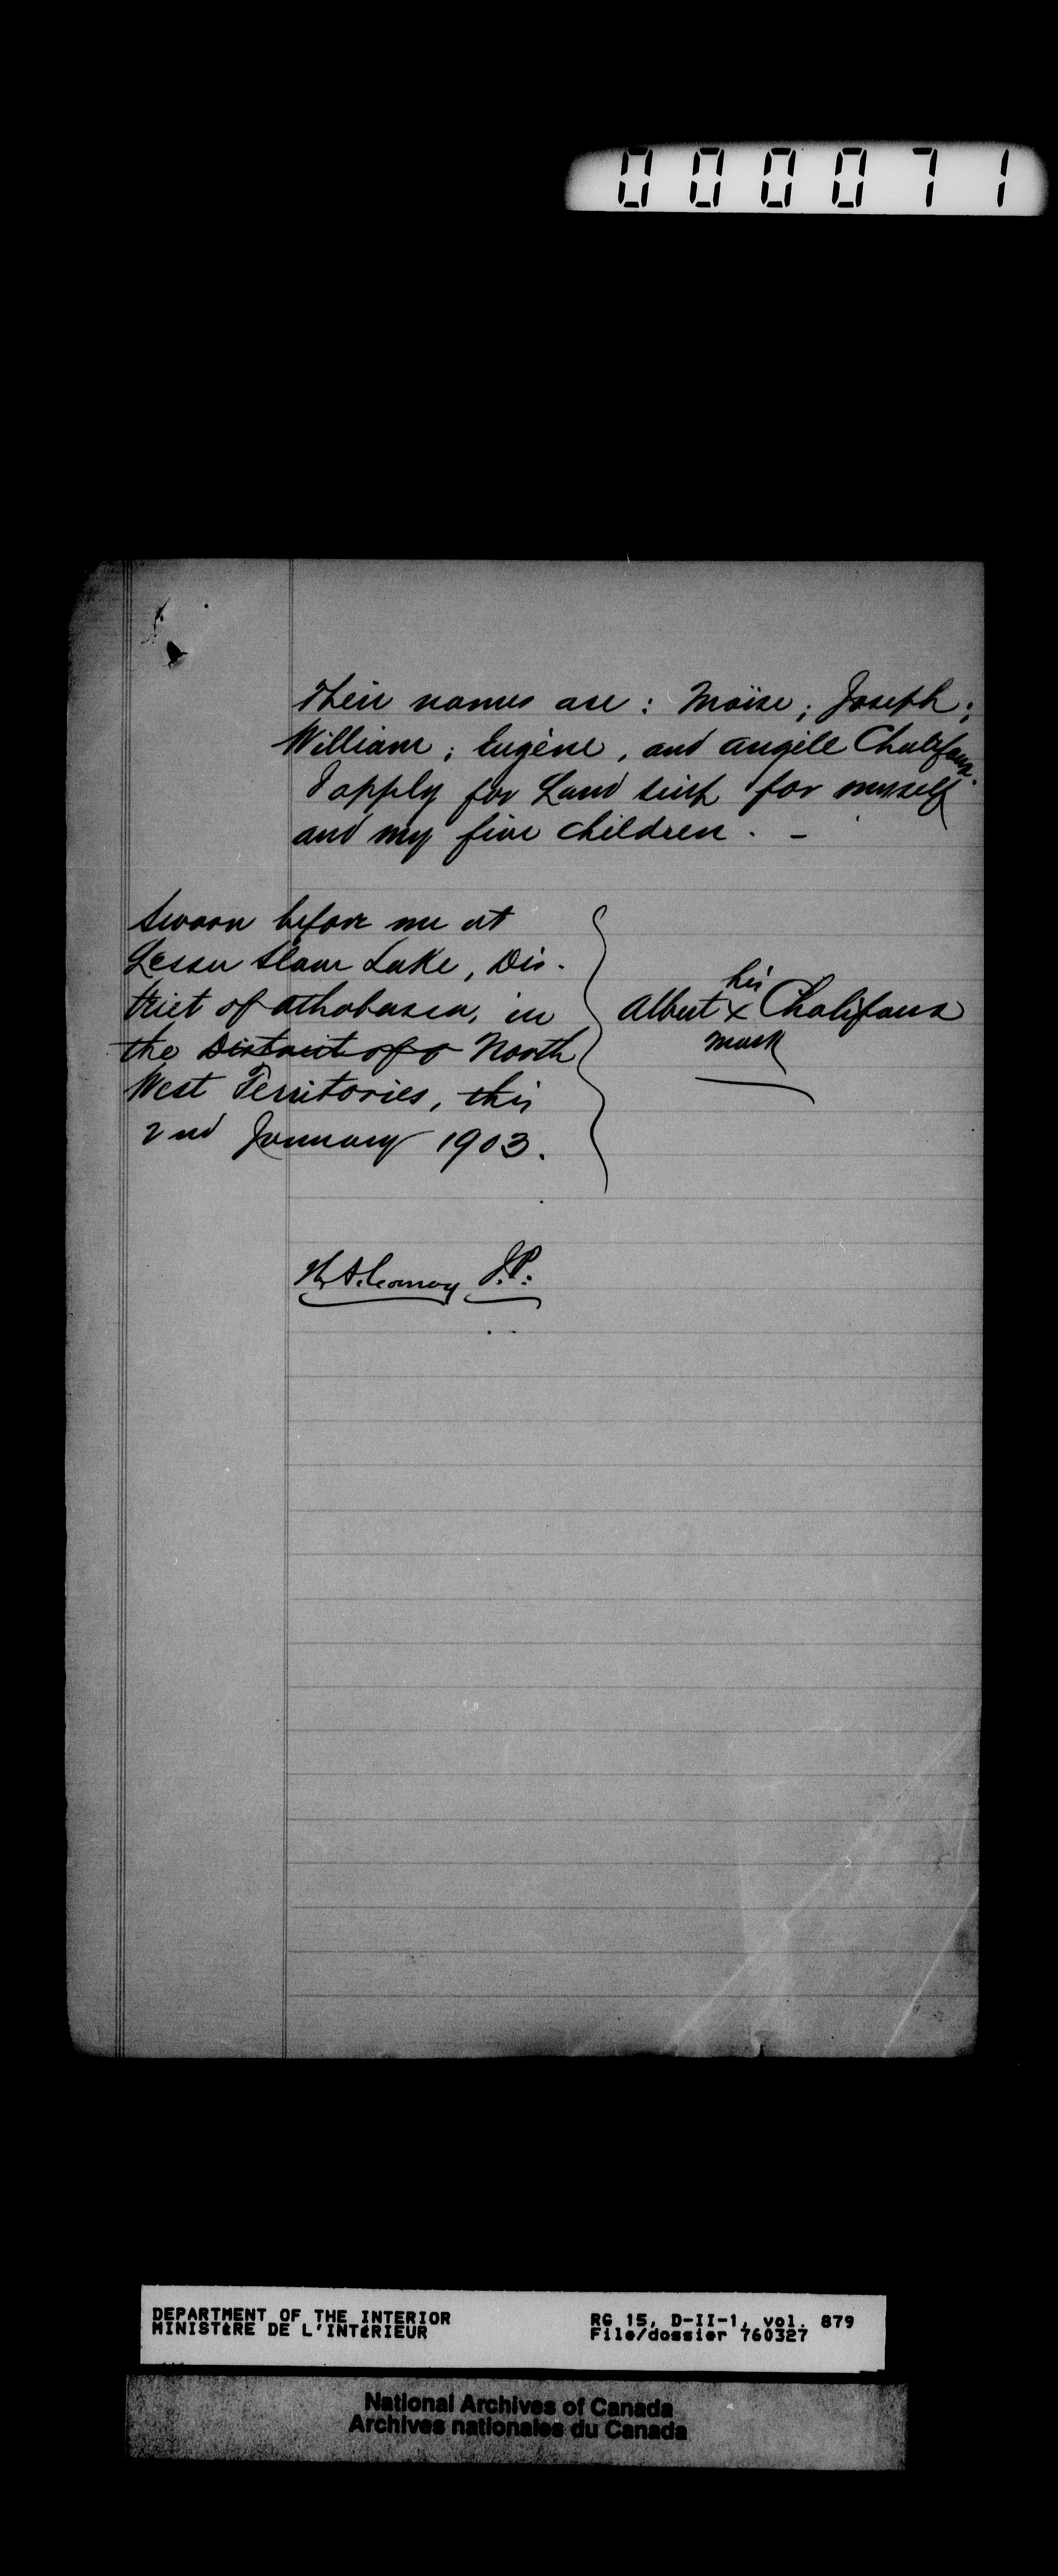 000071
Their names are : Moïse ; Joseph ;
William ; Eugène , and Angéle Chalifoux.
I apply for Land scrip for myself
and my five children . –
Sworn before me at
Lesser Slave Lake, Dis-
trict of Athabasca, in
the District of o North
West Territories, this
2nd January 1903.
his
Albert x Chalifoux
mark
J.P.
DEPARTMENT OF THE INTERIOR
MINISTÈRE DE L'INTÉRIEUR
RG 15, D-II-1, vol. 879
File/dossier 760327
National Archives of Canada
Archives nationales du Canada